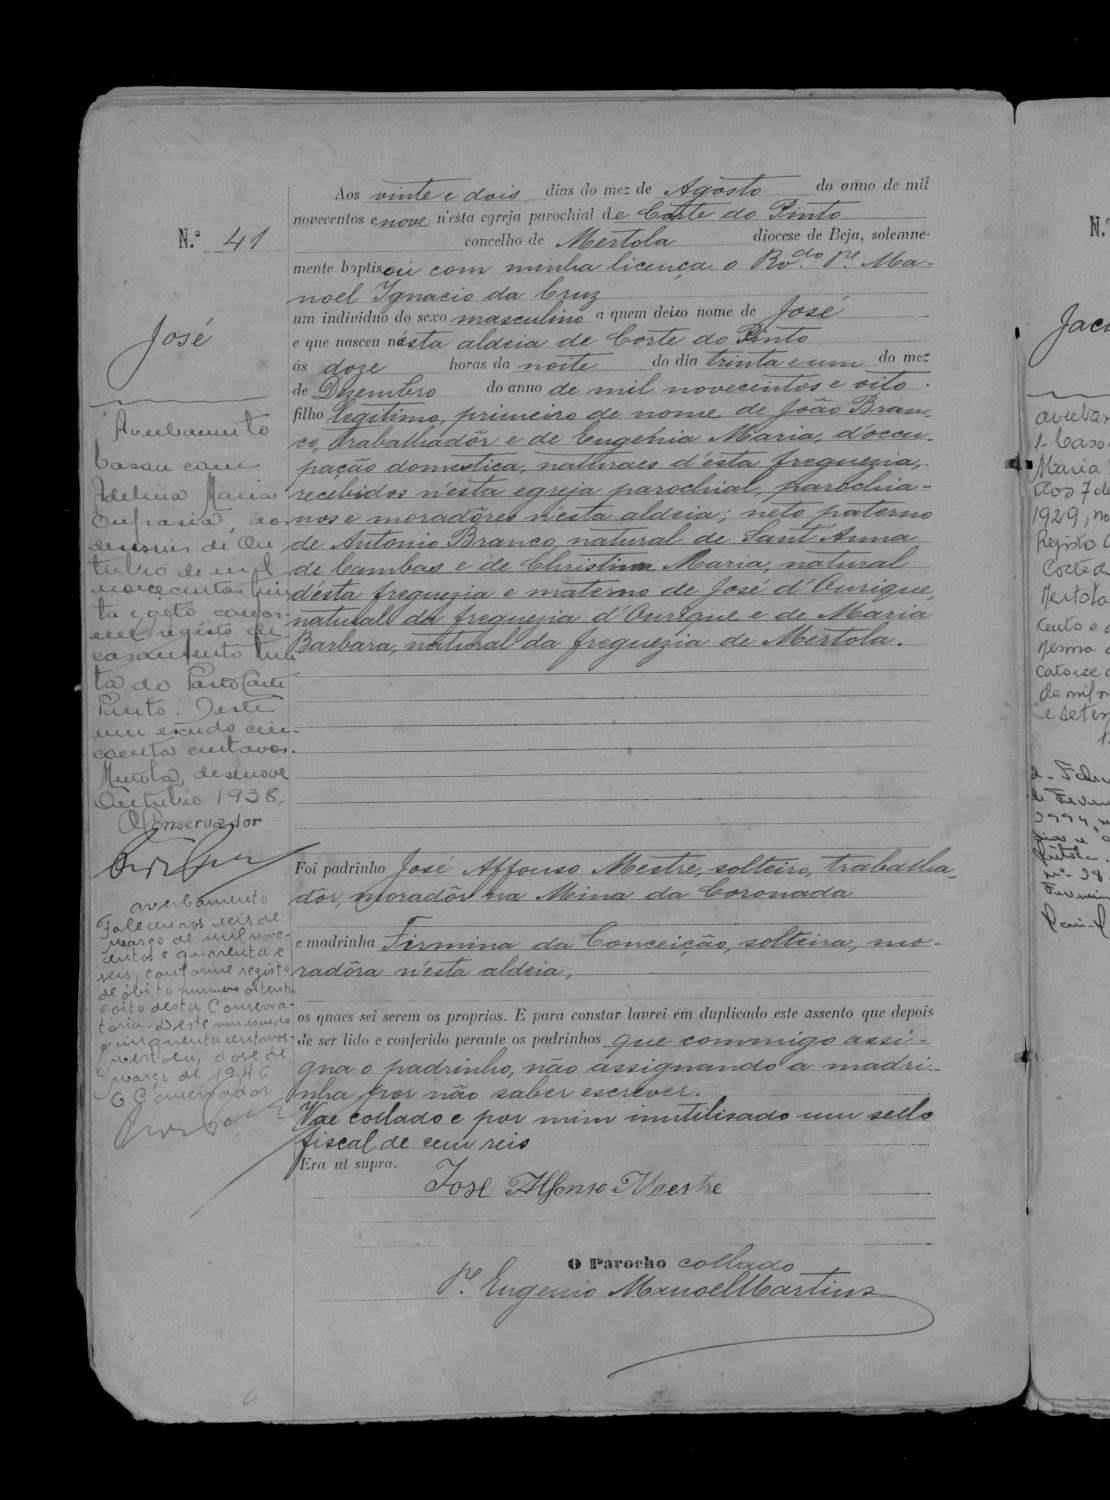 N.º 41
José
Averbamento
Casou com
Adelina Maria
Eufrasia, aos
deseseis de Ou
tubro de mil
novecentos trin
ta e oito confor
me registo de
casamento
ta do Posto Corte
Pinto. Deste
um escudo cin-
coenta centavos.
Mertola, desenove
Outubro 1938.
O Conservador
averbamento
Faleceu aos seis de
março de mil nove-
centos e quarenta e
seis, conforme registo
de óbito numero oitenta
e oito desta Conserva-
tória. Deste um escudo
e cinquenta centavos.
Mertola, doze de
março de 1946
O Conservador
Aos vinte e dois dias do mez de Agosto do anno de mil
novecentos e nove n'esta egreja parochial de Corte do Pinto
concelho de Mertola diocese de Beja, solemne-
mente baptisou com minha licença o Rv.do P.e Ma-
noel Ignacio da Cruz
um individuo do sexo masculino a quem deixo nome de José
e que nasceu nésta aldeia de Corte do Pinto
ás doze horas da noite do dia trinta e um do mez
de Dezembro do anno de mil novecentos e oito.
filho legitimo, primeiro de nome de João Bran-
co, trabalhadôr e de Eugenia Maria, d'occu-
pação domestica, naturaes d'esta freguezia,
recebidos n'esta egreja parochial, parochia-
nos e moradôres n'esta aldeia; neto paterno
de Antonio Branco natural de Sant'Anna
de Cambas e de Christina Maria, natural
d'ésta freguezia e materno de José d'Ourique,
natural da freguezia d'Ourique e de Maria
Barbara, natural da freguezia de Mertola.
Foi padrinho José Affonso Mestre, solteiro, trabalha-
dôr, moradôr na Mina da Coronada
e madrinha Firmina da Conceição, solteira, mo-
radôra n'ésta aldeia,
os quaes sei serem os proprios. E para constar lavrei em duplicado este assento que depois
de ser lido e conferido perante os padrinhos que commigo assi-
gna o padrinho, não assignando a madri-
nha por não saber escrever.
Vae collado e por mim inutilisado um sello
fiscal de cem reis
Era ut supra.
José Affonso Mestre
O Parocho collado
P.e Eugenio Manoel Martins
N.º